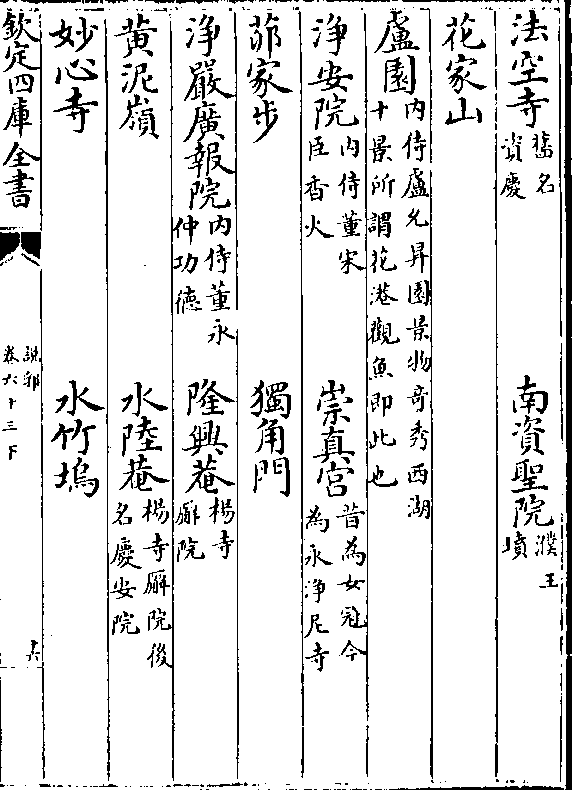 法空寺 舊名資慶 南資聖院 濮王墳
花家山
盧園 内侍盧允昇園景物奇秀西湖十景所謂花港觀魚即此也
淨安院 内侍董宋臣香火 崇真宫 昔為女冠今為永淨尼寺
茆家步 獨角門
淨嚴廣報院 内侍董永仲功德 隆興菴 楊寺廨院
黄泥嶺 水陸菴 楊寺廨院後名慶安院
妙心寺 水竹塢
欽定四庫全書 說郛卷六十三下